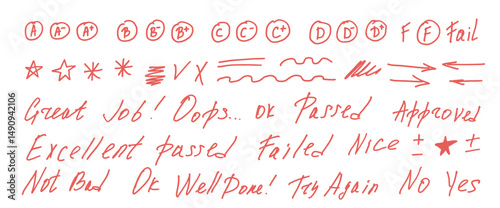 A A- A+ B B- B+ C C- C+ D D- D+ F F Fail
Great Job! Oops... ok Passed Approved
Excellent passed Failed Nice ± ±
Not Bad Ok Well Done! Try Again No Yes
Adobe Stock | #1490942106